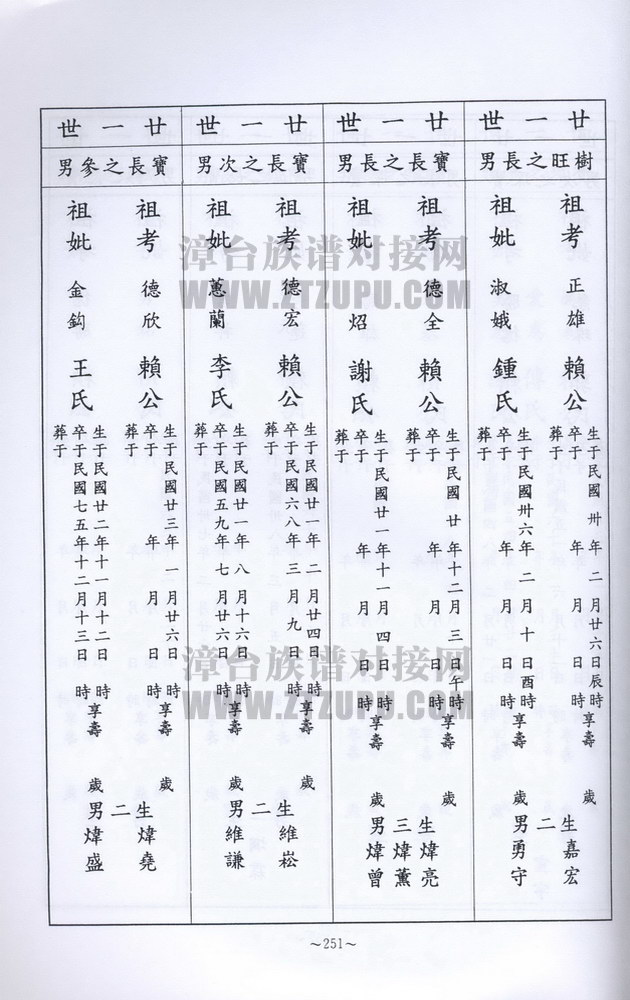 廿一世
樹旺之長男
祖考 正雄 賴公
生于民國卅年二月廿六日辰時享壽
卒于 年 月 日 時 歲
葬于
祖妣 淑娥 鍾氏
生于民國卅六年二月十日酉時享壽
卒于 年 月 日 時 歲
葬于
生嘉宏
二
男勇守
廿一世
寶長之長男
祖考 德全 賴公
生于民國廿年十二月三日午時享壽
卒于 年 月 日 時 歲
葬于
祖妣 炤 謝氏
生于民國廿一年十一月四日 時享壽
卒于 年 月 日 時 歲
葬于
生煒亮
三煒薰
男煒曾
廿一世
寶長之次男
祖考 德宏 賴公
生于民國廿一年二月廿四日 時享壽
卒于民國六八年三月九日 時 歲
葬于
祖妣 蕙蘭 李氏
生于民國廿一年八月十六日 時享壽
卒于民國五九年七月廿六日 時 歲
葬于
生維崧
二
男維謙
廿一世
寶長之參男
祖考 德欣 賴公
生于民國廿三年一月廿六日 時享壽
卒于 年 月 日 時 歲
葬于
祖妣 金鈎 王氏
生于民國廿二年十一月十二日 時享壽
卒于民國七五年十二月十三日 時 歲
葬于
生煒堯
二
男煒盛
漳台族谱对接网
WWW.ZTZUPU.COM
漳台族谱对接网
WWW.ZTZUPU.COM
~251~